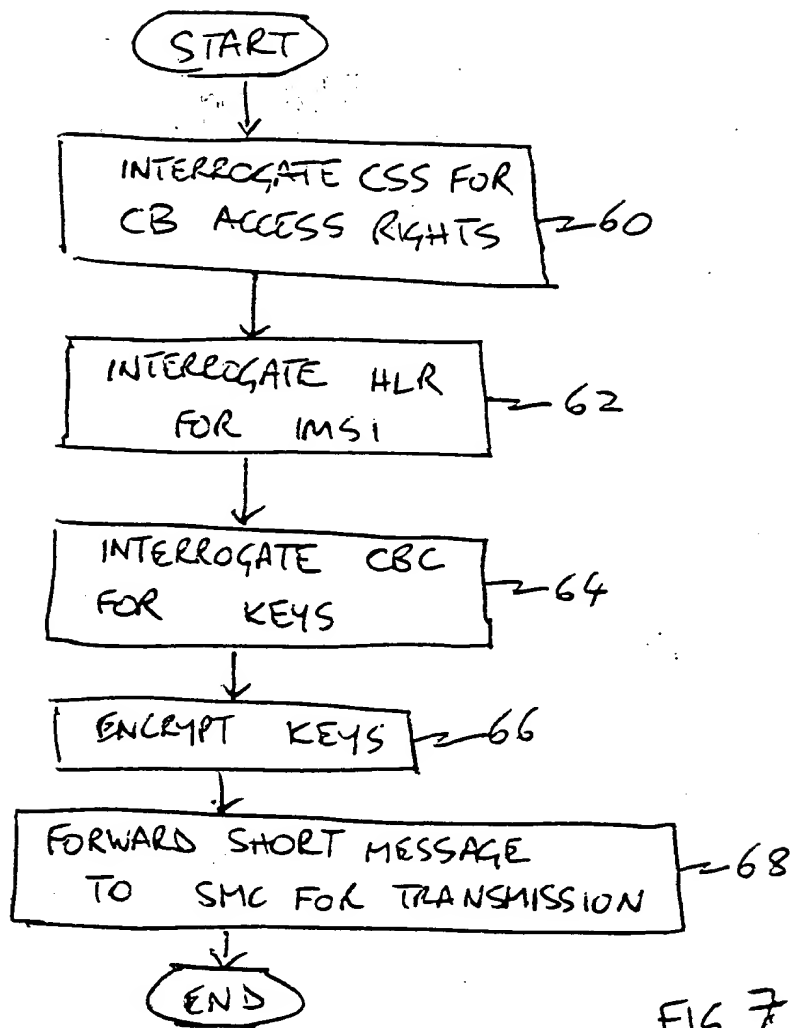 START
INTERROGATE CSS FOR
CB ACCESS RIGHTS
60
INTERROGATE HLR
FOR IMSI
62
INTERROGATE CBC
FOR KEYS
64
ENCRYPT KEYS
66
FORWARD SHORT MESSAGE
TO SMC FOR TRANSMISSION
68
END
FIG 7